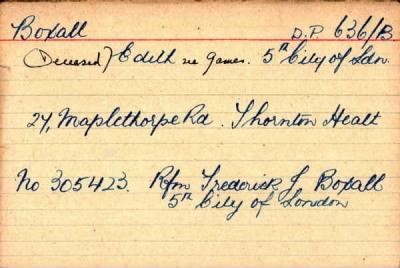 Boxall D.P. 636/B
(Deceased) Edith né Games. 5th City of Ldn.
27, Maplethorpe Rd. Thornton Healt
No 305423. Rfm Frederick J Boxall
5th City of London